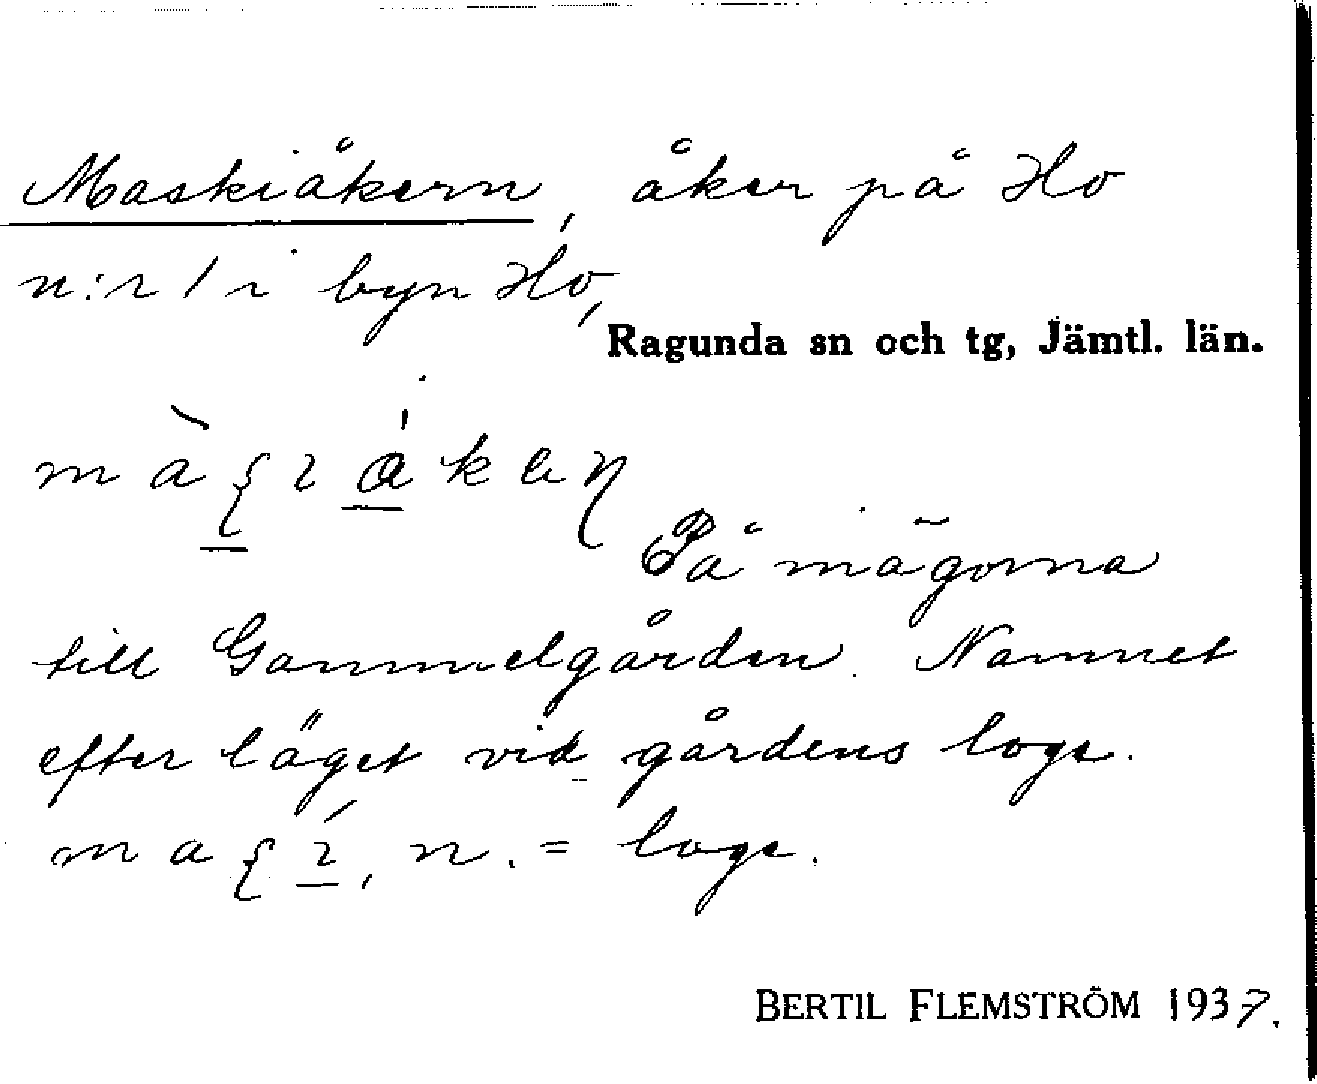 Maskiåkern, åker på Ho
n:r 1 i byn Ho,
Ragunda sn och tg, Jämtl. län.
På mägorna
till Gammelgården. Namnet
efter läget vid gårdens loge.
n. = loge.
BERTIL FLEMSTRÖM 1937.